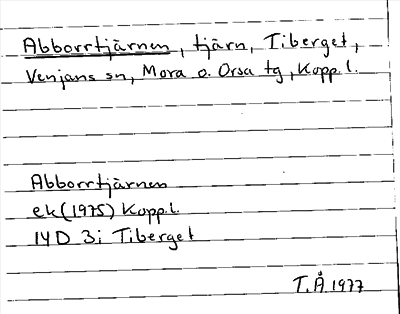 Abborrtjärnen, tjärn, Tiberget,
Venjans sn, Mora o. Orsa tg, Kopp. l.
Abborrtjärnen
ek (1975) Kopp. l.
14D 3i Tiberget
T.Å 1977